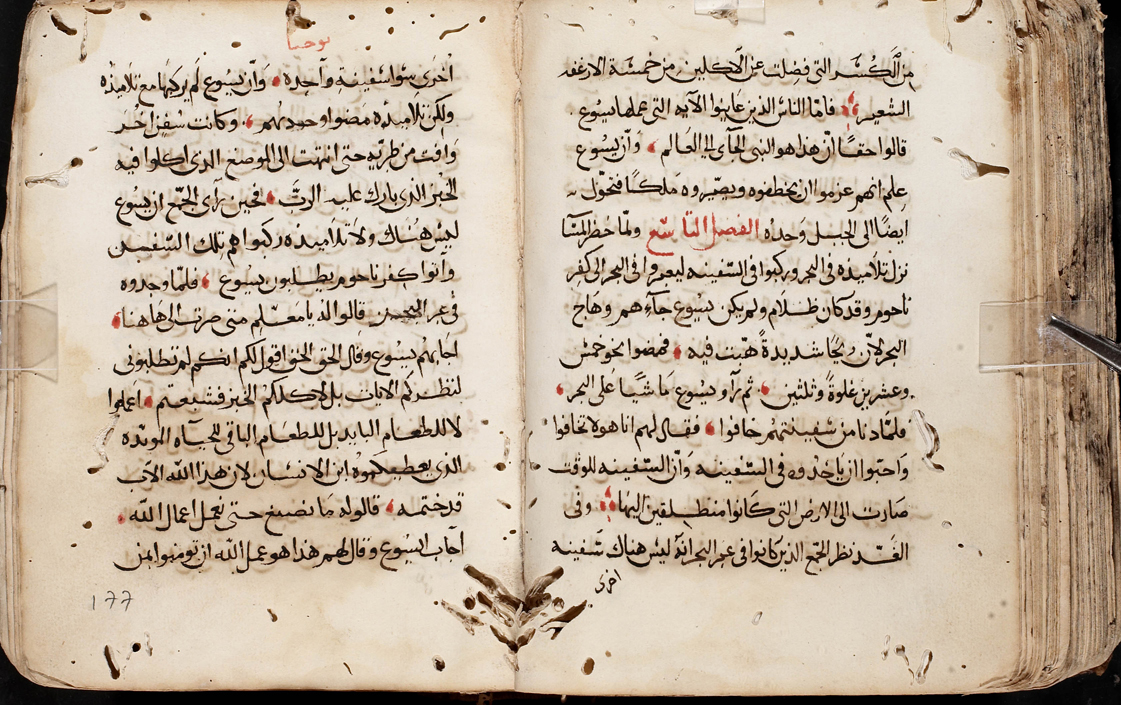 من الكسر التى فضلت عن الآكلين من خمسة الارغفه
الشعير فامّا الناس الذين عاينوا الآيه التى عملها يسوع
قالوا حقًا ان هذا هو النبى الجآى الى العالم وان يسوع
علم انهم عزموا ان يخطفوه ويصيّروه ملكًا فتحوّل
ايضًا الى الجبل وحده الفصل التاسع ولمّا حضر المسآ
نزل تلاميذه فى البحر وركبوا فى السفينه ليعبروا فى البحر الى كفر
ناحوم وقد كان ظلام ولم يكن يسوع جآءهم وهاج
البحر لان ريحًا شديدةً هبّت فيه فمضوا نحو خمس
وعشرين غلوةً وثلثين ثم رآو يسوع ماشيًا على البحر
فلمّا دنا من سفينتهم خافوا فقال لهم انا هو لا تخافوا
واحبّوا ان ياخذوه فى السّفينه وانّ السّفينه للوقت
صارت الى الارض التى كانوا منطلقين اليها وفى
الغد نظر الجمع الذين كانوا فى عبر البحر انّه ليس هناك سفينه
اخرى
يوحنا
اخرى سوا سفينةٍ واحده وان يسوع لم يركبها مع تلاميذه
ولكن تلاميذه مضوا وحدهم وكانت سفن اخر
وافت من طبريّه حتى انتهت الى الموضع الذى اكلوا فيه
الخبز الذى بارك عليه الربّ فحين رآى الجمّع ان يسوع
ليس هناك ولا تلاميذه ركبوا هم تلك السّفين
واتوا كفر ناحوم يطلبون يسوع فلمّا وجدوه
فى عبر البحر قالوا له يا معلم متى صرت الى هاهنا
اجابهم يسوع وقال الحق الحق اقول لكم انكم لم تطلبونى
لنظركم الايات بل لاكلكم الخبز فشبعتم اعملوا
لا للطعام البايد بل للطعام الباقى للحياه الموبّده
الذى يعطيكموه ابن الانسان لان هذا الله الآب
قد ختمه قالوا له ما نصنع حتى نعمل اعمال الله
اجاب يسوع وقال لهم هذا هو عمل الله ان تومنوا بمن
177